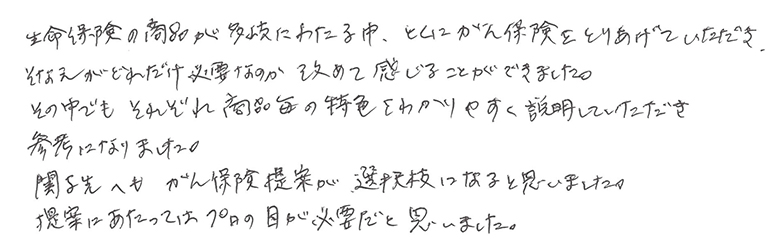 生命保険の商品が多岐にわたる中、とくにがん保険をとりあげていただき、
そなえがどれだけ必要なのか 改めて感じることができました。
その中でも それぞれ商品毎の特色をわかりやすく説明していただき
参考になりました。
関与先へも がん保険提案が 選択枝になると思いました。
提案にあたってはプロの目が必要だと思いました。